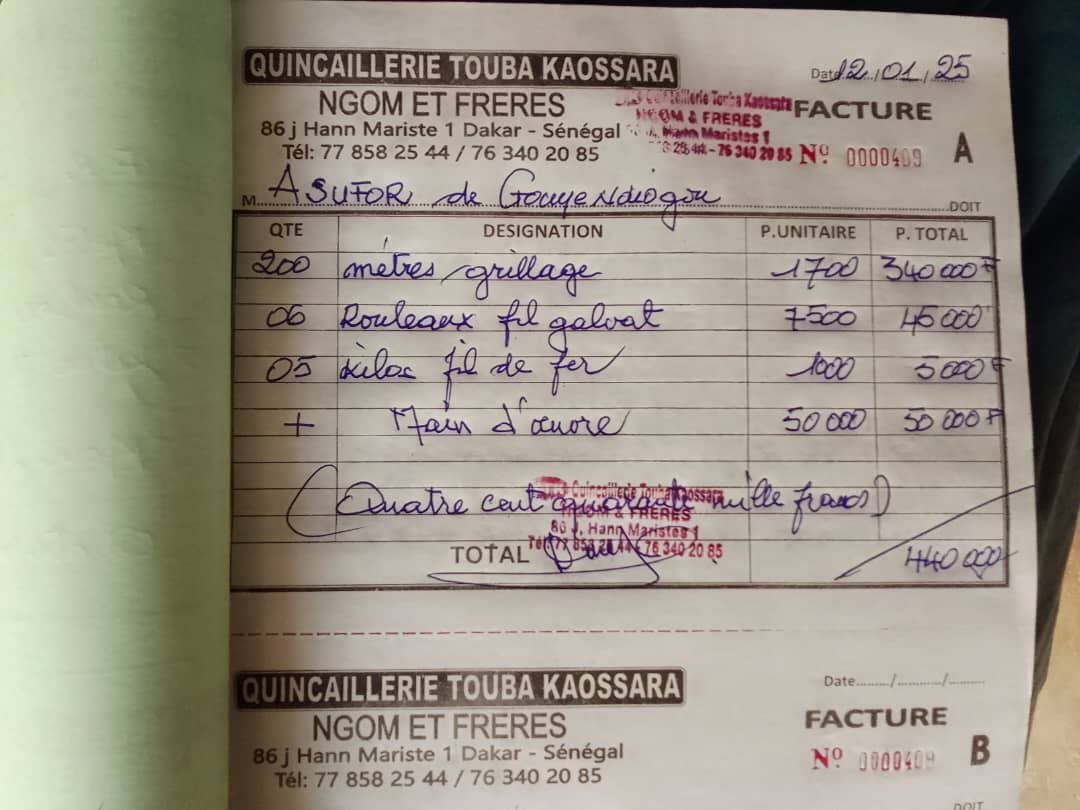 QUINCAILLERIE TOUBA KAOSSARA
Date 12/01/25
NGOM ET FRERES
FACTURE
86 j Hann Mariste 1 Dakar - Sénégal
Tél: 77 858 25 44 / 76 340 20 85
Quincaillerie Touba Kaossara
NGOM & FRERES
Hann Maristes 1
76 340 20 85
Nº 0000409 A
M. ASUFOR de Gouye Ndiogou DOIT
QTE DESIGNATION P.UNITAIRE P. TOTAL
200 mètres grillage 1700 340 000 F
06 Rouleaux fil galvat 7500 45 000
05 kilos fil de fer 1000 5 000 F
+ Main d'œuvre 50 000 50 000 F
(Quatre cent quarante mille francs)
Quincaillerie Touba Kaossara
NGOM & FRERES
86 J, Hann Maristes 1
Tél: 77 858 25 44 - 76 340 20 85
TOTAL 440 000
QUINCAILLERIE TOUBA KAOSSARA
Date......../........../.........
NGOM ET FRERES
FACTURE
86 j Hann Mariste 1 Dakar - Sénégal
Tél: 77 858 25 44 / 76 340 20 85
Nº 0000409 B
DOIT